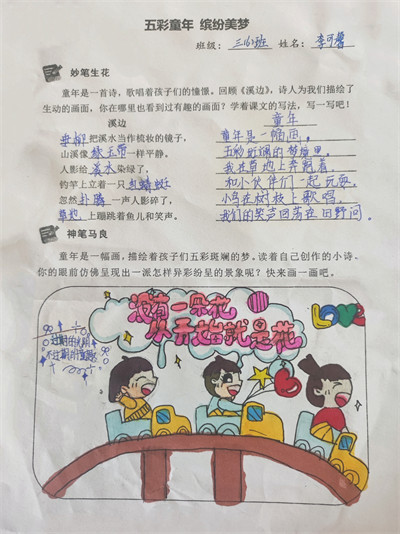 五彩童年 缤纷美梦
班级：三(6)班 姓名：李可馨
妙笔生花
童年是一首诗，歌唱着孩子们的憧憬。回顾《溪边》，诗人为我们描绘了
生动的画面，你在哪里也看到过有趣的画面？学着课文的写法，写一写吧！
溪边
垂柳把溪水当作梳妆的镜子，
山溪像绿玉带一样平静。
人影给溪水染绿了，
钓竿上立着一只红蜻蜓
忽然扑腾一声人影碎了，
草地上蹦跳着鱼儿和笑声。
童年
童年是一幅画。
五彩斑斓的梦境里，
我在草地上奔跑着，
和小伙伴们一起玩耍，
小鸟在树枝上歌唱，
我们的笑声回荡在田野间。
神笔马良
童年是一幅画，描绘着孩子们五彩斑斓的梦。读着自己创作的小诗，
你的眼前仿佛呈现出一派怎样异彩纷呈的景象呢？快来画一画吧。
没有一朵花
从开始就是花
LOVE